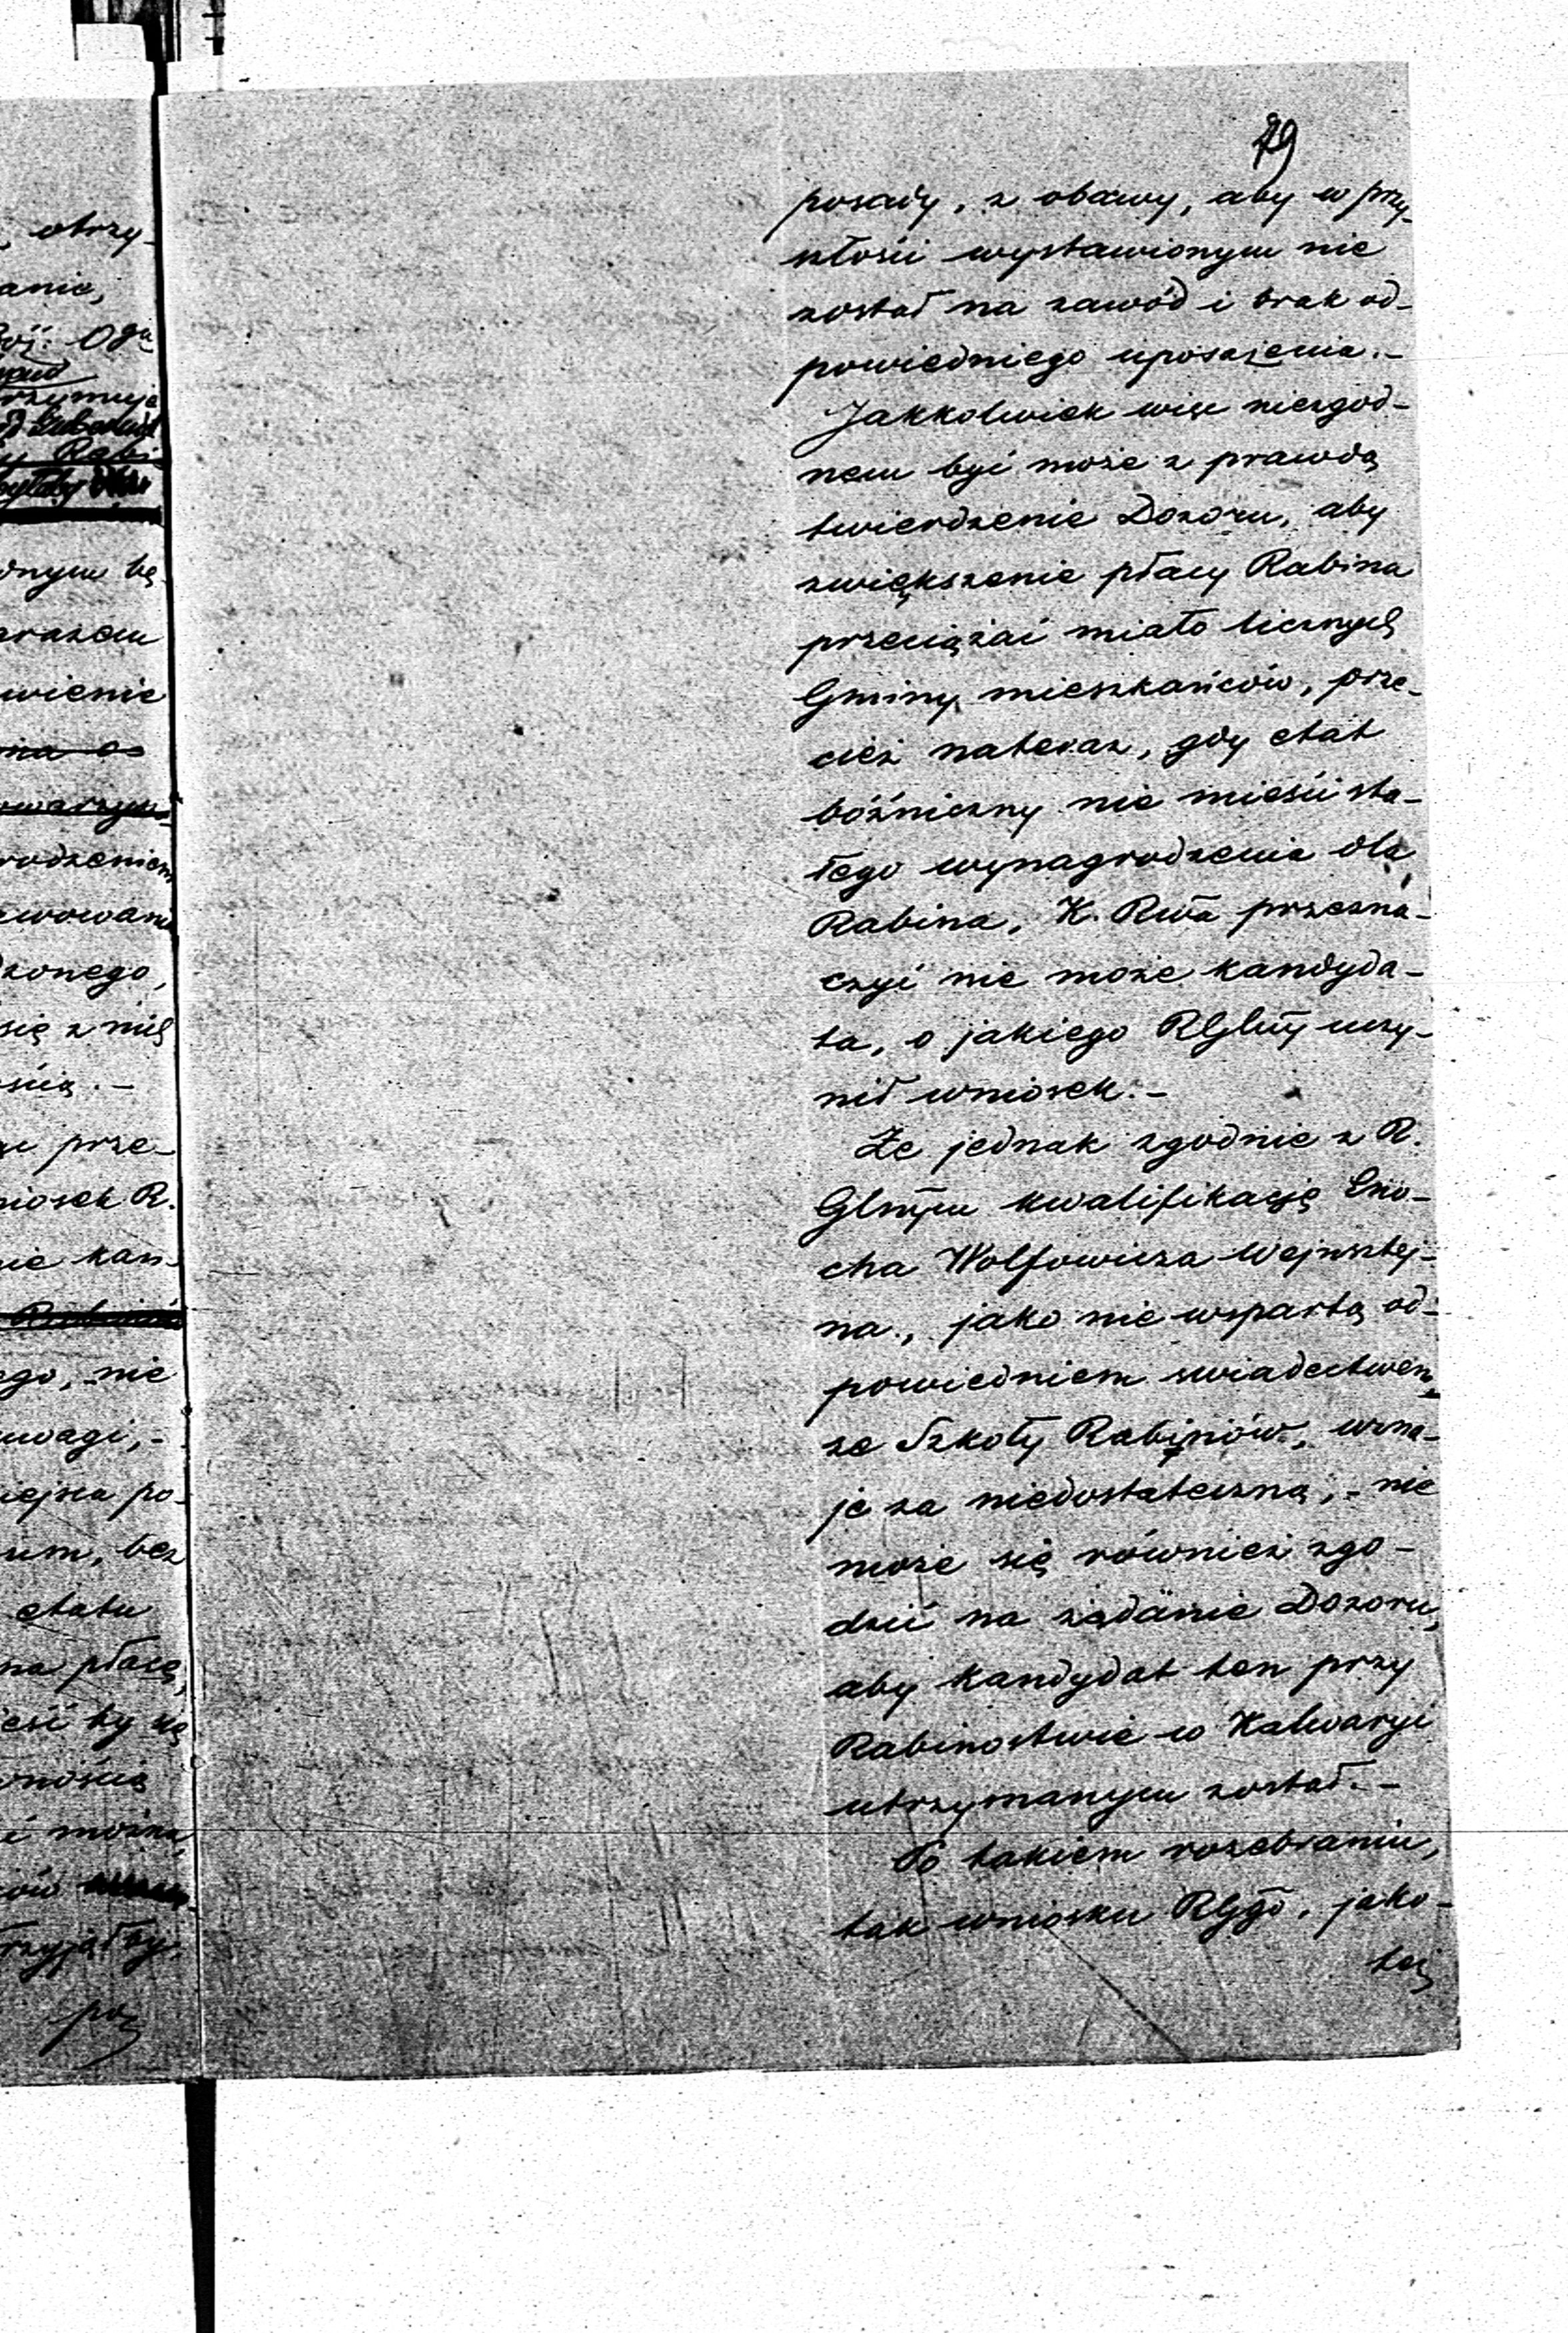 , otrzy-
anie,
rzymuje
Rabi-
dnym bę
arazem
wienie
na o
owarzysz
rodzeniem
dzonego,
się z nich
ścią.-
prze-
niosek R.
nie kan-
ego, nie
uwagi,-
miejsca po-
um, bez
etatu
na płacę,
nością
i można,
rzyjąłby,
po-
79
posady, z obawy, aby w przy-
szłości wystawionym nie
został na zawód i brak od-
powiedniego uposażenia.-
Jakkolwiek więc niezgod-
nem być może z prawdą
twierdzenie Dozoru, aby
zwiększenie płacy Rabina
przeciążać miało licznych
Gminy mieszkańców, prze-
cież nateraz, gdy etat
bóźniczny nie mieści sta-
łego wynagrodzenia dla
Rabina, K. Rwa przezna-
czyć nie może kandyda-
ta, o jakiego RGlny uczy-
nił wniosek.-
Że jednak zgodnie z R.
Glnym kwalifikacją Eno-
cha Wolfowicza Wejnsztej-
na, jako nie wspartą od-
powiedniem swiadectwem
ze Szkoły Rabinów, uzna-
je za niedostateczną;- nie
może się również zgo-
dzić na żądanie Dozoru,
aby kandydat ten przy
Rabinostwie w Kalwaryi
utrzymanym został.-
Po takiem rozebraniu,
tak wniosku RGgo, jako-
też